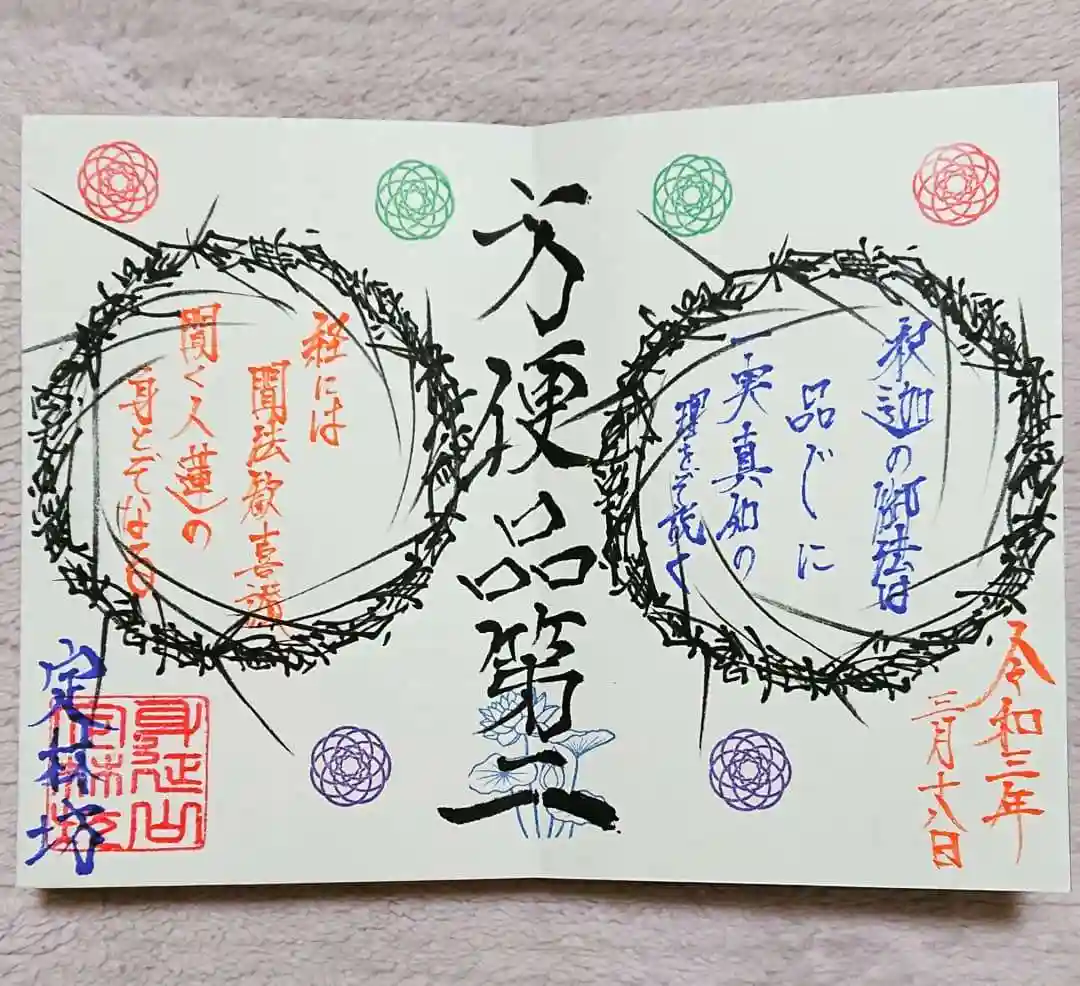 令和三年
三月十八日
釈迦の御法は
品〴〵に
一実真如の
理をぞ説く
方便品第二
経には
聞法歓喜讃
聞く人蓮の
身とぞなる
身延山
定林坊
定林坊